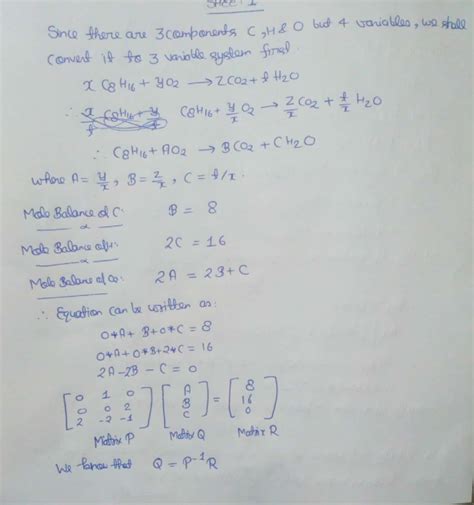 SHEET: 1
Since there are 3 components C, H & O but 4 variables, we shall
convert it to 3 variable system first.
x C8H16 + yO2 → ZCO2 + tH2O
∴ C8H16 + y/x O2 → Z/x CO2 + t/x H2O
∴ C8H16 + AO2 → BCO2 + CH2O
where A = y/x, B = Z/x, C = t/x.
Mole Balance of C: B = 8
Mole Balance of H: 2C = 16
Mole Balance of O: 2A = 2B + C
∴ Equation can be written as:
0*A + B + 0*C = 8
0*A + 0*B + 2*C = 16
2A - 2B - C = 0
[0 1 0] [A] = [8]
[0 0 2] [B] [16]
[2 -2 -1] [C] [0]
Matrix P Matrix Q Matrix R
We know that Q = P⁻¹R